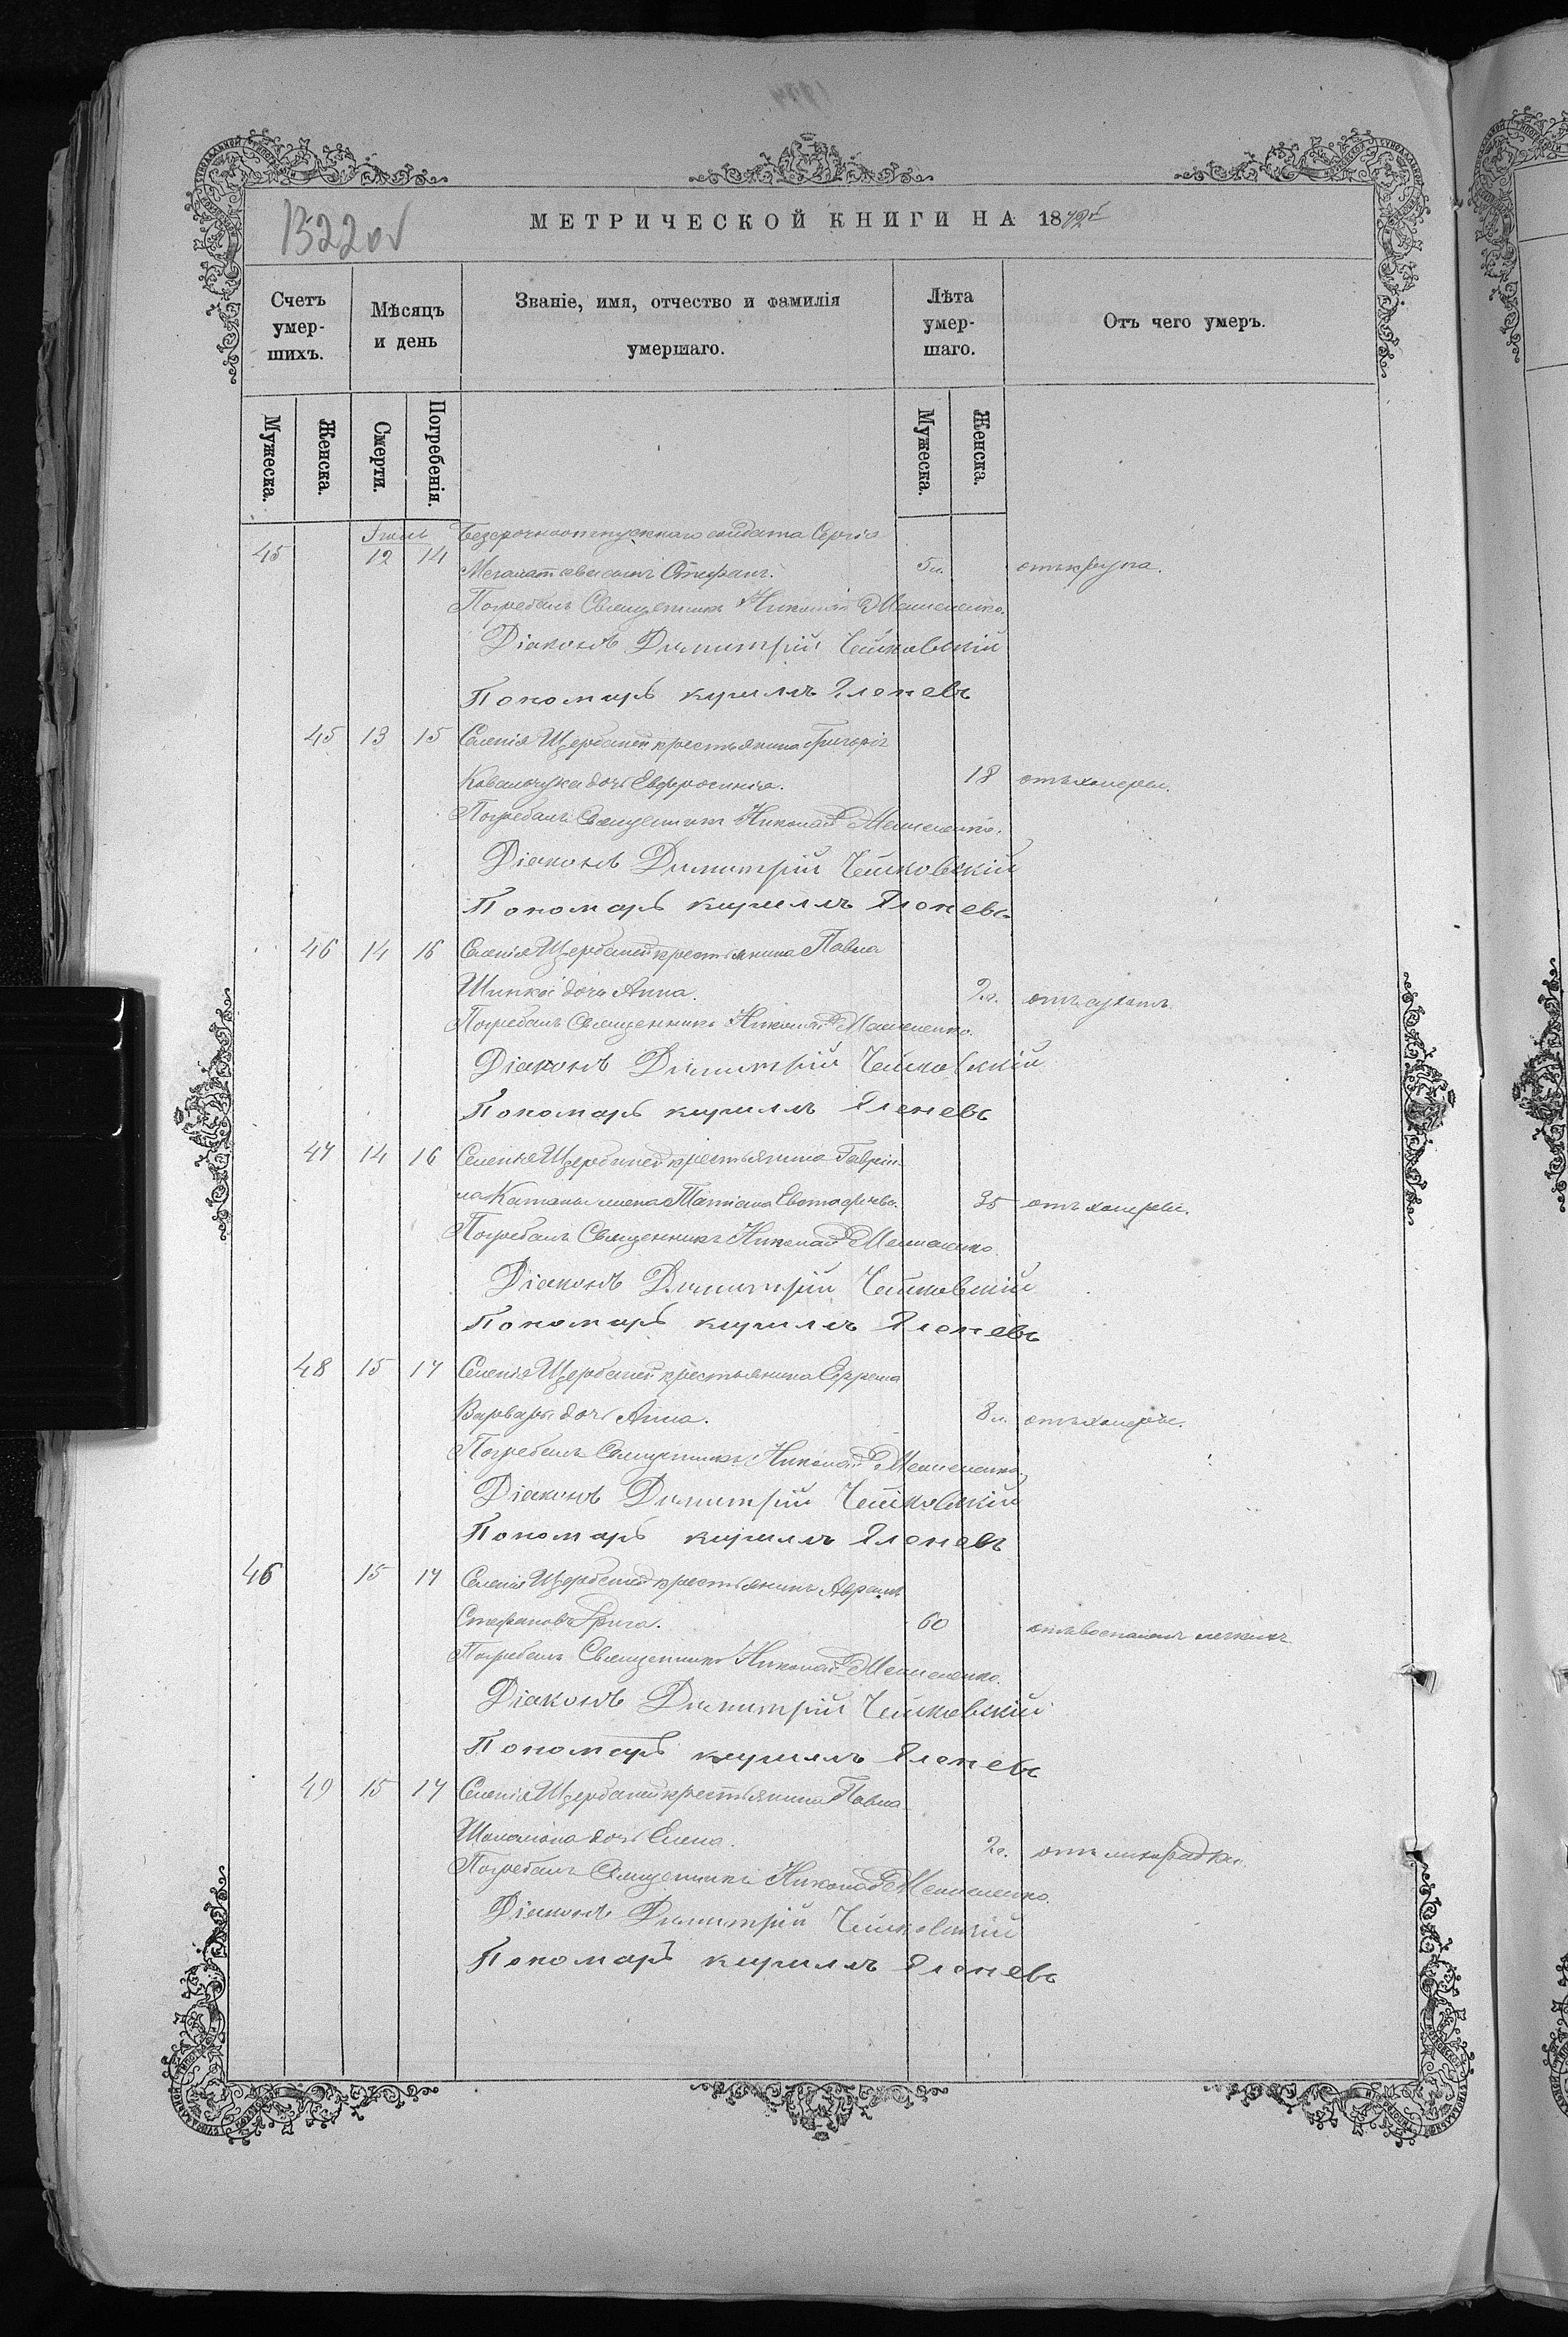 1322 об
МЕТРИЧЕСКОЙ КНИГИ НА 1872 г.
Счетъ умер-шихъ.
Мѣсяцъ и день
Званіе, имя, отчество и фамилія умершаго.
Лѣта умер-шаго.
Отъ чего умеръ.
Мужеска. Женска. Смерти. Погребенія. Мужеска. Женска.
Іюль Безсрочноотпускнаго солдата Сергія
45 12 14 сынъ Стефанъ. 5 л. отъ крупа.
Погребалъ Священникъ Николай
Діаконъ Димитрій Чайковскій
Пономарь кириллъ
45 13 15 Селенія Щербаней крестьянина Григорія
Ковальчука дочь Евфросинія. 18 отъ холеры.
Погребалъ Священникъ Николай
Діаконъ Димитрій Чайковскій
Пономарь кириллъ
46 14 16 Селенія Щербаней крестьянина Павла
дочь Анна. 2 г. отъ сухотъ
Погребалъ Священникъ Николай
Діаконъ Димитрій Чайковскій
Пономарь кириллъ
47 14 16 Селенія Щербаней крестьянина Гаврiи-
ла Катаны жена Татіана Евстафіева. 35 отъ холеры.
Погребалъ Священникъ Николай
Діаконъ Димитрій Чайковскій
Пономарь кириллъ
48 15 17 Селенія Щербаней крестьянина Ефрема
Варвары дочь Анна. 8 л. отъ холеры.
Погребалъ Священникъ Николай
Діаконъ Димитрій Чайковскій
Пономарь кириллъ
46 15 17 Селенія Щербаней крестьянинъ Авраамъ
Стефановъ 60 отъ воспаленія легкихъ
Погребалъ Священникъ Николай
Діаконъ Димитрій Чайковскій
Пономарь кириллъ
49 15 17 Селенія Щербаней крестьянина Павла
дочь Елена. 2 г. отъ лихорадки.
Погребалъ Священникъ Николай
Діаконъ Димитрій Чайковскій
Пономарь кириллъ